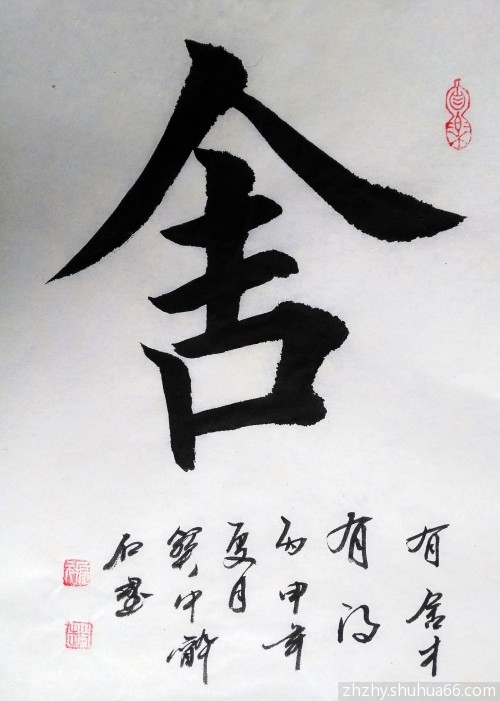 舍
有舍才
有得
丙申年
夏月
中
石
zhzhy.shuhua66.com